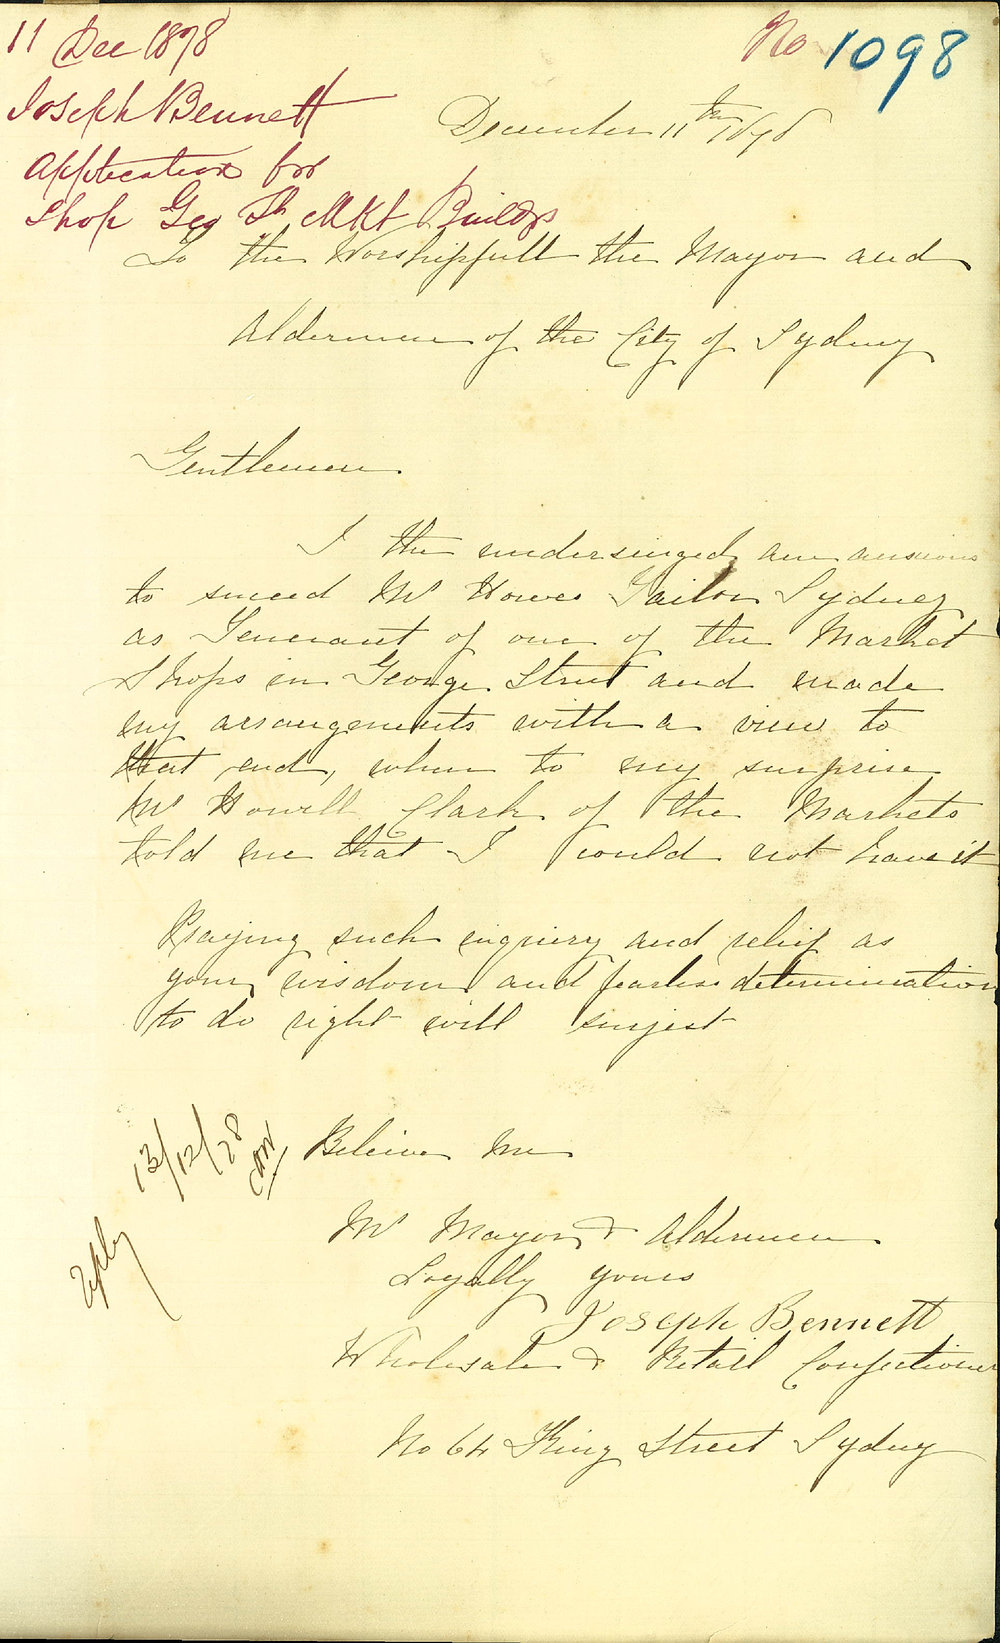 11 Dec 1878
No 1098
Joseph Bennett
Application for
Shop Geo St Mkt Buildgs
December 11th 1878
To the Worshipfull the Mayor and
Aldermen of the City of Sydney
Gentlemen
I the undersinged am anxious
to suceed Mr Howes Tailor Sydney
as Tenenant of one of the Market
Shops in George Street and made
my arrangements with a view to
that end, when to my surprise
Mr Howell Clark of the Markets
told me that I could not have it
Praying such enquiery and relief as
your wisdom and fearless determination
to do right will sugest
Beleive Me
Mr Mayor & Aldermen
Loyally yours
Joseph Bennett
Wholesale & Retail Confectioner
No 64 King Street Sydney
13/12/78
Reply